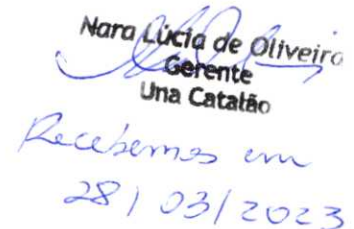 Nara Lúcia de Oliveira
Gerente
Una Catalão
Recebemos em
28/03/2023